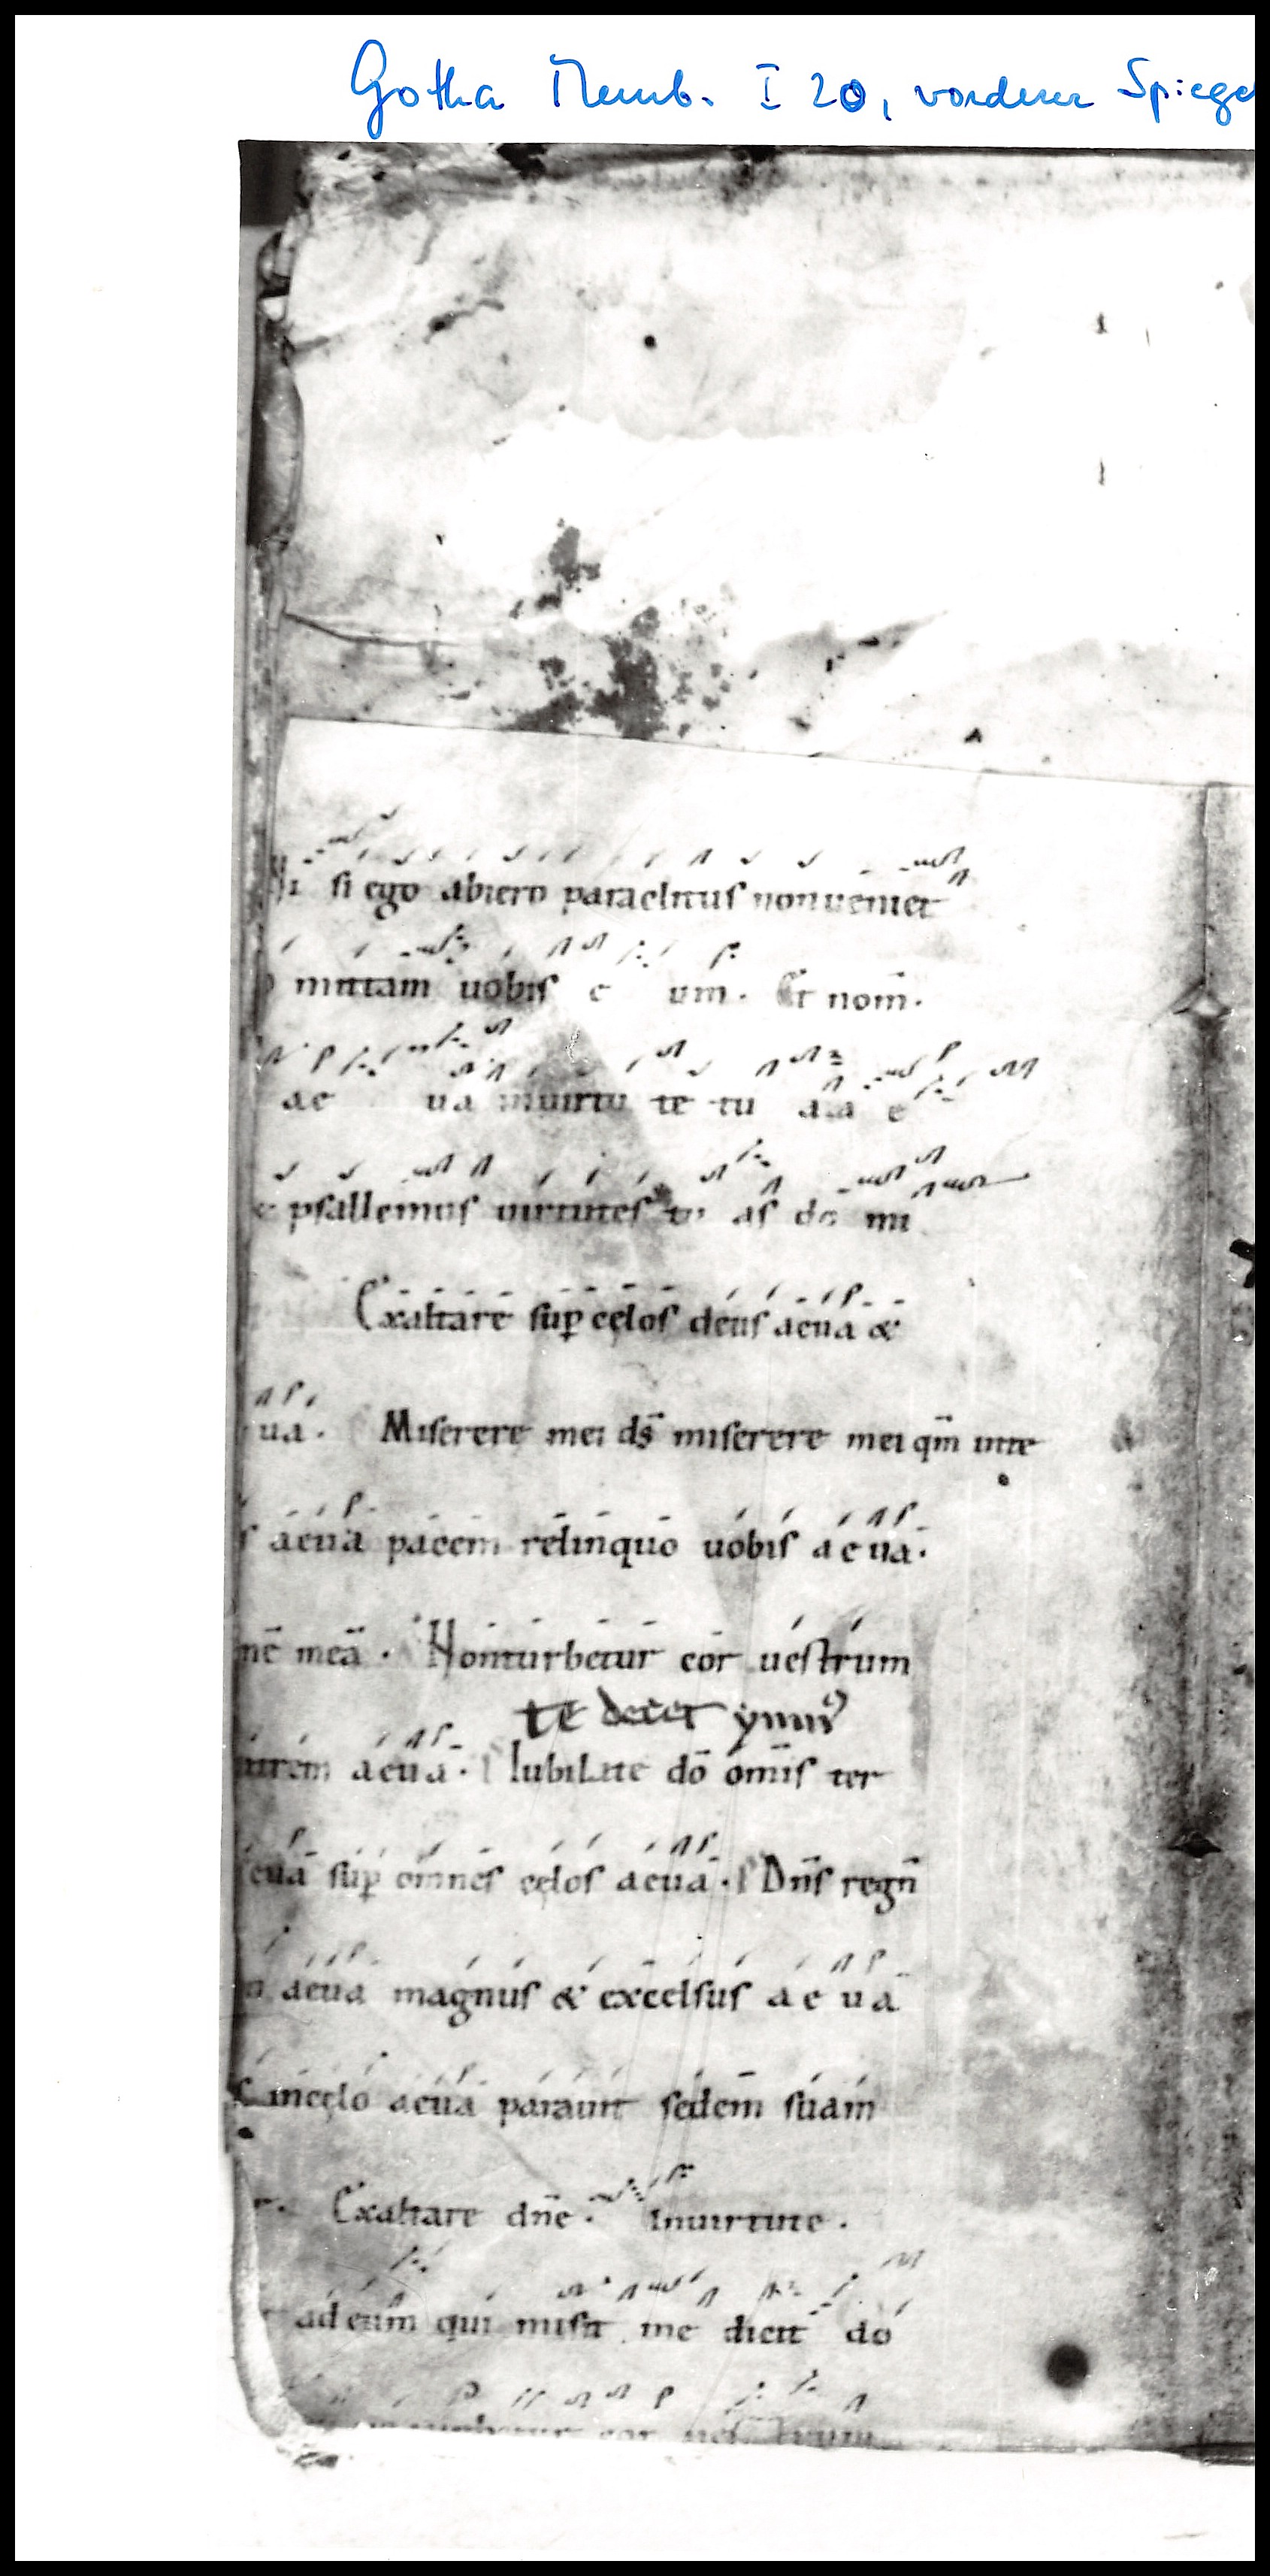 Gotha Memb. I 20, vorderer Spiege
si ego abiero paraclitus non ueniet
mittam uobis e um. Et nom̄.
ae ua inuirtu te tu a a e
psallemus uirtutes tu as do mi
Exaltare sup̄ cęlos deus aeua &
ua. Miserere mei ds̄ miserere mei qm̄ inte
s aeua pacem relinquo uobis aeua.
nē meā. Non turbetur cor uestrum
te decet ymnꝰ
aeua. Iubilate dō omīs ter
euā sup̄ omnes cęlos aeua. Dn̄s regn̄
aeua magnus & excelsus aeua
incęlo aeua parauit sedem suam
Exaltare dn̄e. Inuirtute.
ad eum qui misit me dicit do
cor ues trum